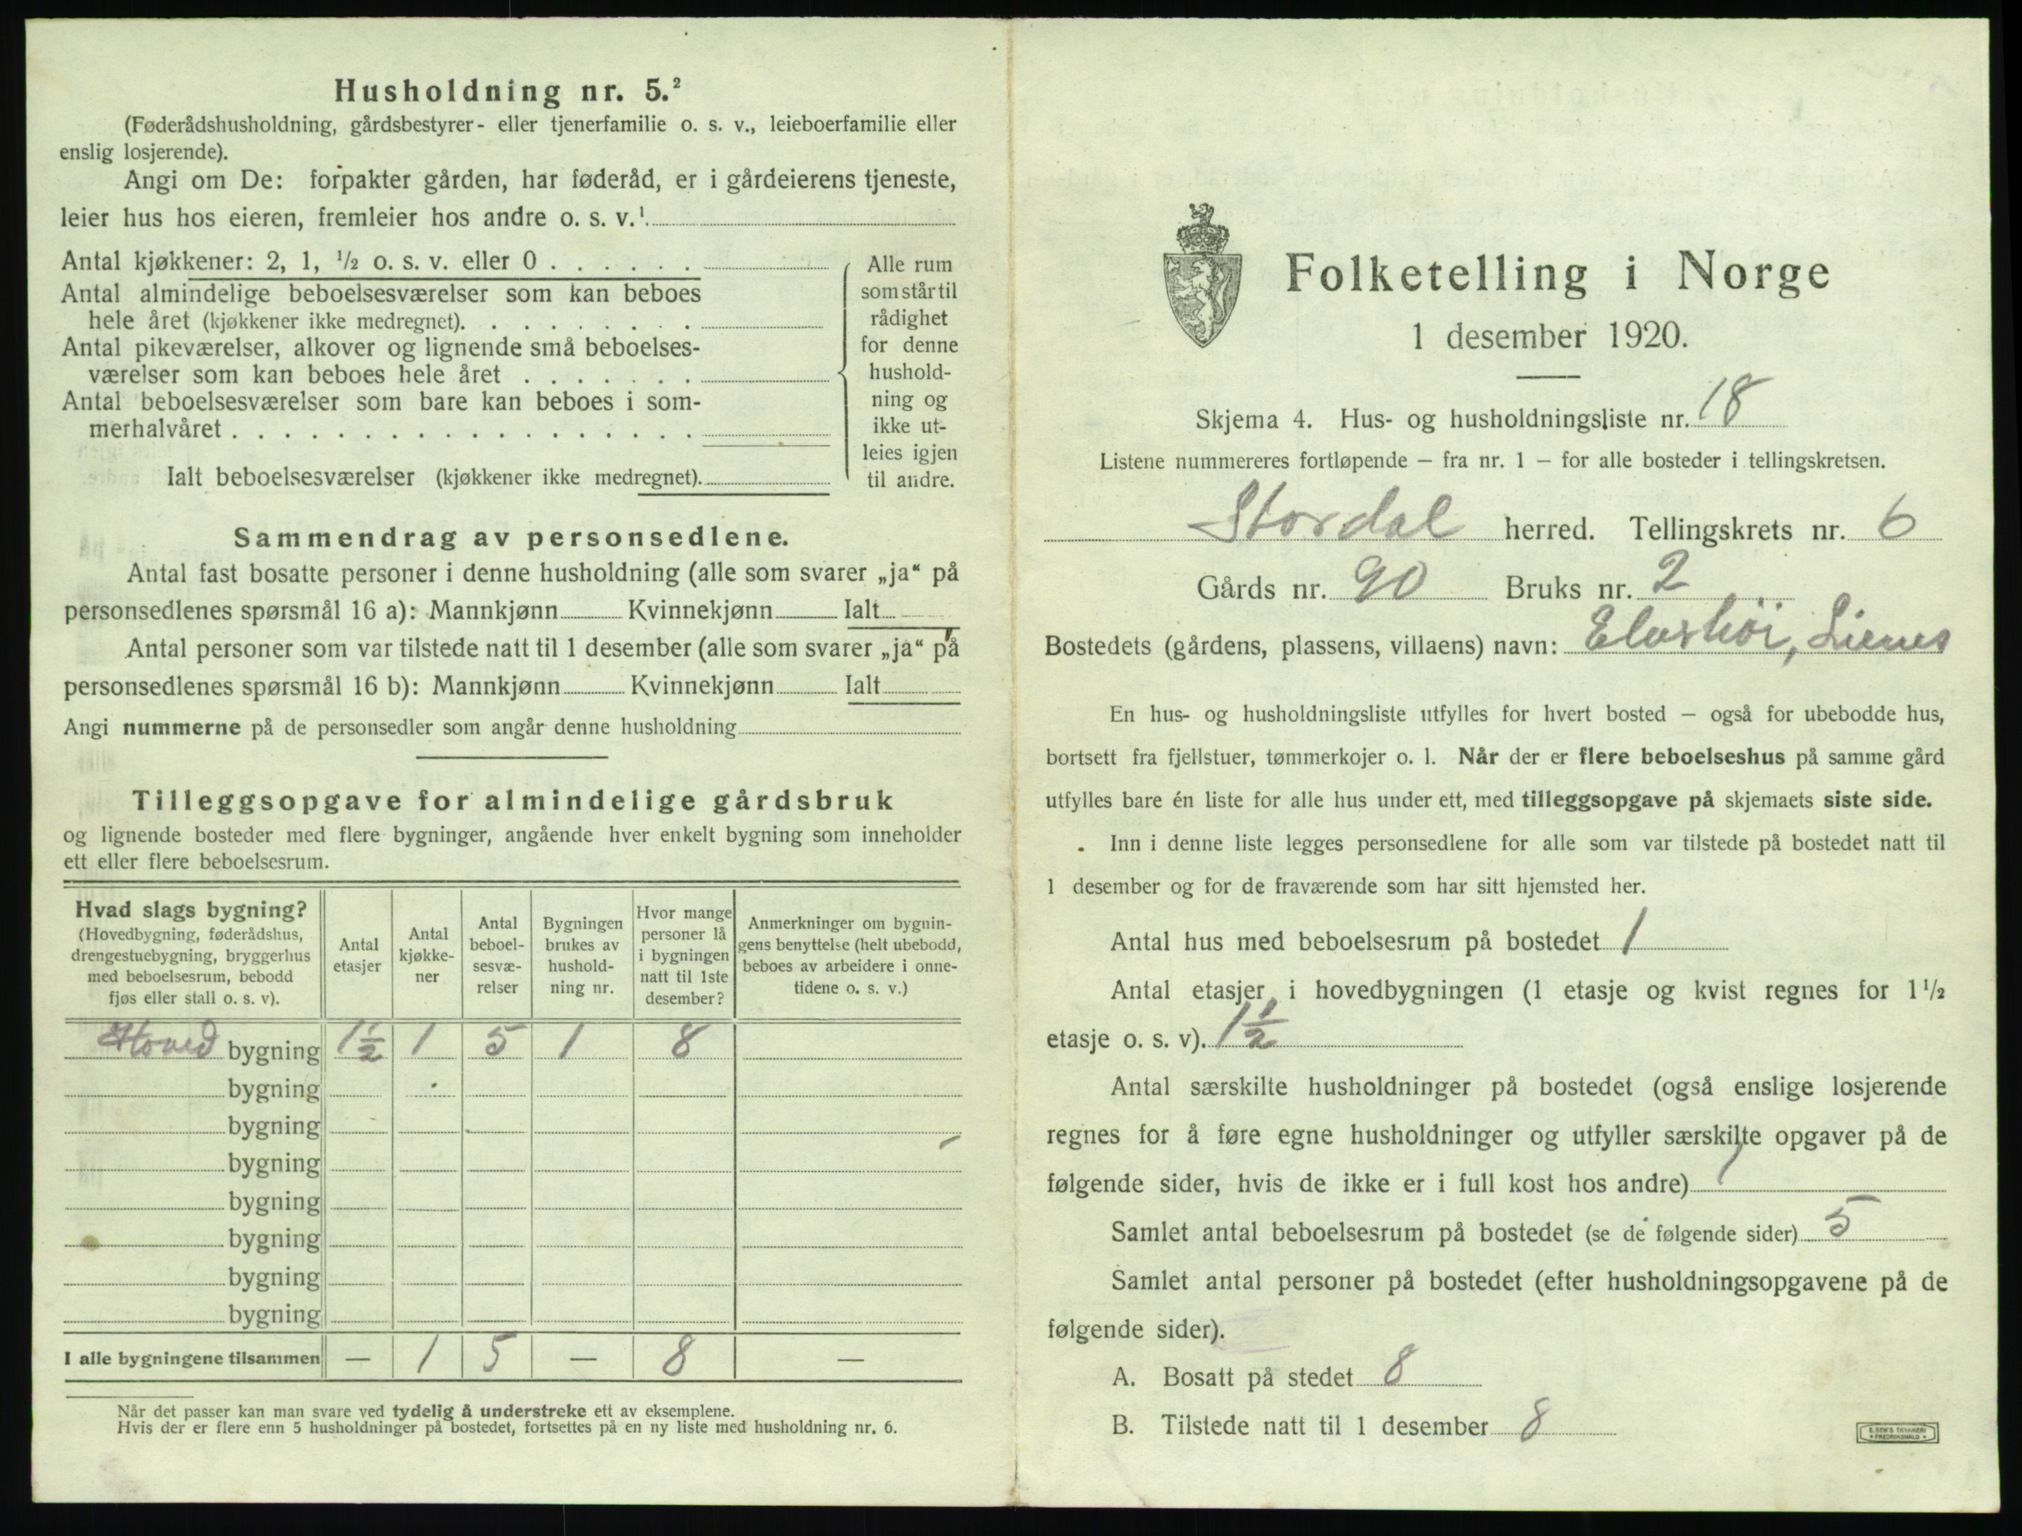 Husholdning nr. 5.²
(Føderådshusholdning, gårdsbestyrer- eller tjenerfamilie o. s. v., leieboerfamilie eller
enslig losjerende).
Angi om De: forpakter gården, har føderåd, er i gårdeierens tjeneste,
leier hus hos eieren, fremleier hos andre o. s. v.¹
Antal kjøkkener: 2, 1, ½ o. s. v. eller 0 . . . . . .
Antal almindelige beboelsesværelser som kan beboes
hele året (kjøkkener ikke medregnet). . . . . . . . .
Antal pikeværelser, alkover og lignende små beboelses-
værelser som kan beboes hele året . . . . . . .
Antal beboelsesværelser som bare kan beboes i som-
merhalvåret . . . . . . . . . . . . . . . . . .
Ialt beboelsesværelser (kjøkkener ikke medregnet).
Alle rum
som står til
rådighet
for denne
hushold-
ning og
ikke ut-
leies igjen
til andre.
Sammendrag av personsedlene.
Antal fast bosatte personer i denne husholdning (alle som svarer „ja“ på
personsedlenes spørsmål 16 a): Mannkjønn Kvinnekjønn Ialt
Antal personer som var tilstede natt til 1 desember (alle som svarer „ja“ på
personsedlenes spørsmål 16 b): Mannkjønn Kvinnekjønn Ialt
Angi nummerne på de personsedler som angår denne husholdning
Tilleggsopgave for almindelige gårdsbruk
og lignende bosteder med flere bygninger, angående hver enkelt bygning som inneholder
ett eller flere beboelsesrum.
Hvad slags bygning?
(Hovedbygning, føderådshus,
drengestuebygning, bryggerhus
med beboelsesrum, bebodd
fjøs eller stall o. s. v).
Antal
etasjer
Antal
kjøkke-
ner
Antal
beboel-
sesvæ-
relser
Bygningen
brukes av
hushold-
ning nr.
Hvor mange
personer lå
i bygningen
natt til 1ste
desember?
Anmerkninger om bygnin-
gens benyttelse (helt ubebodd,
beboes av arbeidere i onne-
tidene o. s. v.)
Hoved bygning 1½ 1 5 1 8
bygning
bygning
bygning
bygning
bygning
bygning
bygning
I alle bygningene tilsammen — 1 5 — 8 —
Når det passer kan man svare ved tydelig å understreke ett av eksemplene.
Hvis der er flere enn 5 husholdninger på bostedet, fortsettes på en ny liste med husholdning nr. 6.
Folketelling i Norge
1 desember 1920.
Skjema 4. Hus- og husholdningsliste nr. 18
Listene nummereres fortløpende — fra nr. 1 — for alle bosteder i tellingskretsen.
Stordal herred. Tellingskrets nr. 6
Gårds nr. 90 Bruks nr. 2
Bostedets (gårdens, plassens, villaens) navn:
En hus- og husholdningsliste utfylles for hvert bosted — også for ubebodde hus,
bortsett fra fjellstuer, tømmerkojer o. l. Når der er flere beboelseshus på samme gård
utfylles bare én liste for alle hus under ett, med tilleggsopgave på skjemaets siste side.
Inn i denne liste legges personsedlene for alle som var tilstede på bostedet natt til
1 desember og for de fraværende som har sitt hjemsted her.
Antal hus med beboelsesrum på bostedet 1
Antal etasjer i hovedbygningen (1 etasje og kvist regnes for 1½
etasje o. s. v). 1½
Antal særskilte husholdninger på bostedet (også enslige losjerende
regnes for å føre egne husholdninger og utfyller særskilte opgaver på de
følgende sider, hvis de ikke er i full kost hos andre) 1
Samlet antal beboelsesrum på bostedet (se de følgende sider) 5
Samlet antal personer på bostedet (efter husholdningsopgavene på de
følgende sider).
A. Bosatt på stedet 8
B. Tilstede natt til 1 desember 8